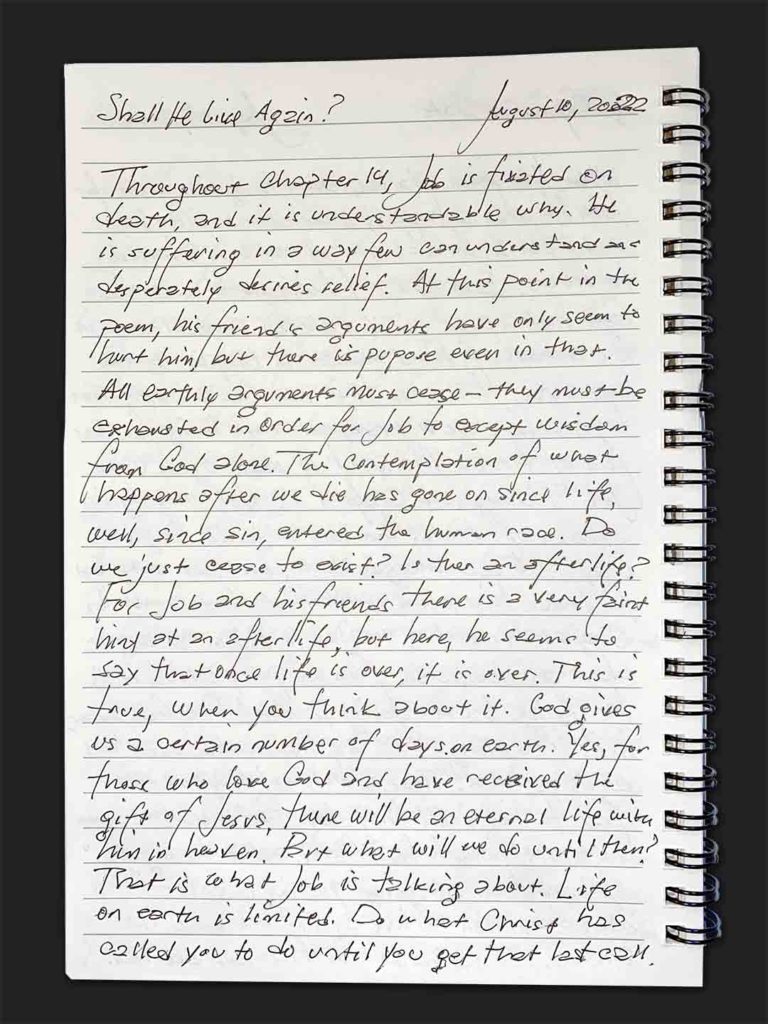 Shall He Live Again? August 10, 2022
Throughout chapter 14, Job is fixated on
death, and it is understandable why. He
is suffering in a way few can understand and
desperately desires relief. At this point in the
poem, his friend's arguments have only seem to
hurt him, but there is pupose even in that.
All earthly arguments must cease - they must be
exhausted in order for Job to except wisdom
from God alone. The contemplation of what
happens after we die has gone on since life,
well, since sin, entered the human race. Do
we just cease to exist? Is ther an afterlife?
For Job and his friends there is a very faint
hint at an afterlife, but here, he seems to
say that once life is over, it is over. This is
true, when you think about it. God gives
us a certain number of days on earth. Yes, for
those who love God and have received the
gift of Jesus, there will be an eternal life with
him in heaven. But what will we do until then?
That is what Job is talking about. Life
on earth is limited. Do what Christ has
called you to do until you get that last call.